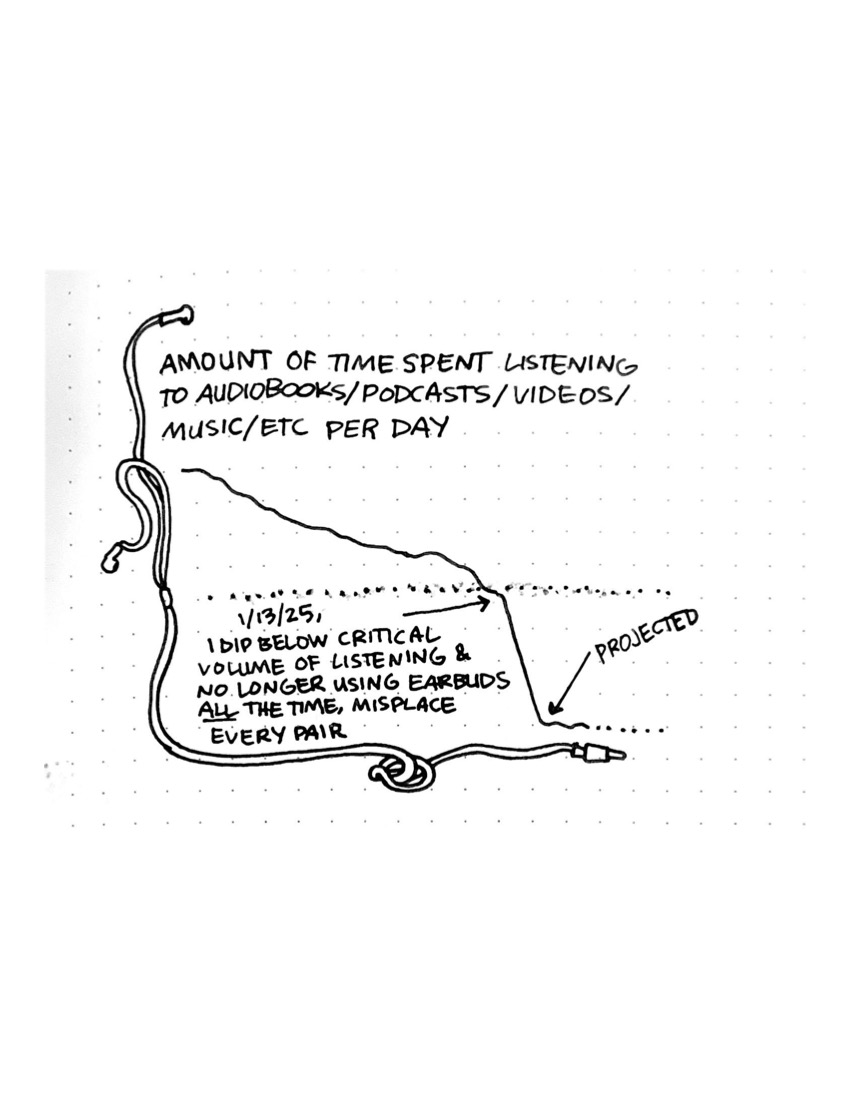 AMOUNT OF TIME SPENT LISTENING
TO AUDIOBOOKS/PODCASTS/VIDEOS/
MUSIC/ETC PER DAY
1/13/25,
I DIP BELOW CRITICAL
VOLUME OF LISTENING &
NO LONGER USING EARBUDS
ALL THE TIME, MISPLACE
EVERY PAIR
PROJECTED